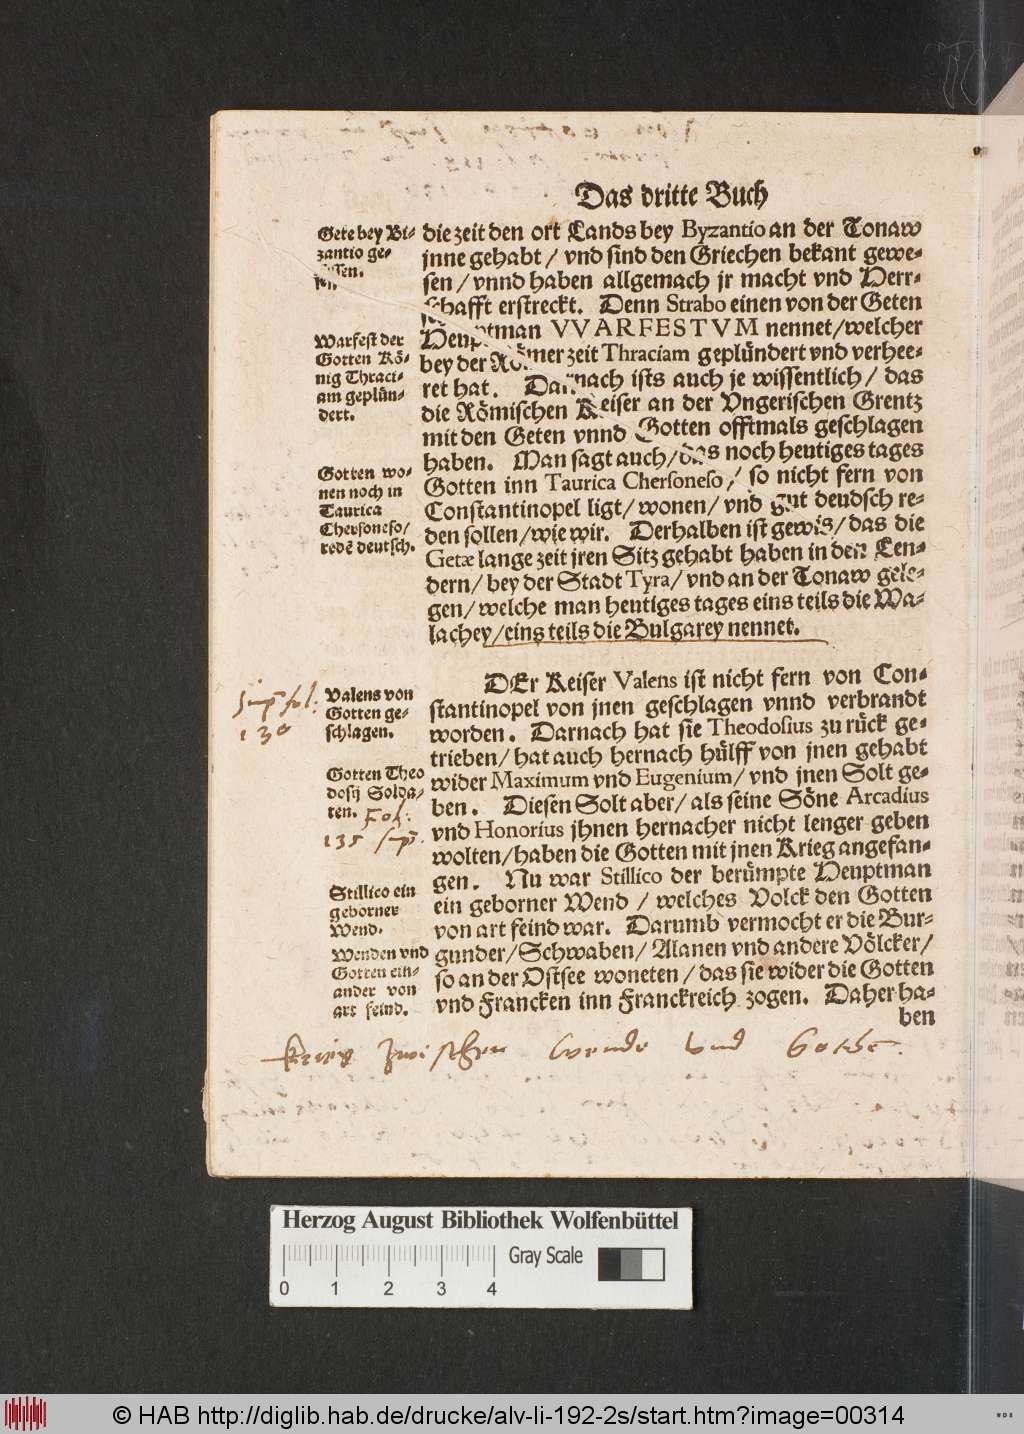 Das dritte Buch
Gete bey Bi-
zantio ge-
sessen.
die zeit den ort Lands bey Byzantio an der Tonaw
jnne gehabt / vnd sind den Griechen bekant gewe-
sen / vnnd haben allgemach jr macht vnd Herr-
schafft erstreckt. Denn Strabo einen von der Geten
Heuptman VVARFESTVM nennet/welcher
bey der Römer zeit Thraciam geplündert vnd verhee-
ret hat. Darnach ists auch je wissentlich / das
die Römischen Keiser an der Vngerischen Grentz
mit den Geten vnnd Gotten offtmals geschlagen
haben. Man sagt auch/das noch heutiges tages
Gotten inn Taurica Chersoneso, / so nicht fern von
Constantinopel ligt/ wonen/ vnd gut deudsch re-
den sollen/wie wir. Derhalben ist gewis/das die
Getæ lange zeit jren Sitz gehabt haben in den Len-
dern/ bey der Stadt Tyra/ vnd an der Tonaw gele-
gen/ welche man heutiges tages eins teils die Wa-
lachey/eins teils die Bulgarey nennet.
Warfest der
Gotten Kö-
nig Thraci-
am geplün-
dert.
Gotten wo-
nen noch in
Taurica
Chersoneso/
redẽ deutsch.
DEr Keiser Valens ist nicht fern von Con-
stantinopel von jnen geschlagen vnnd verbrandt
worden. Darnach hat sie Theodosius zu rück ge-
trieben/ hat auch hernach hülff von jnen gehabt
wider Maximum vnd Eugenium/ vnd jnen Solt ge-
ben. Diesen Solt aber/ als seine Söne Arcadius
vnd Honorius jhnen hernacher nicht lenger geben
wolten/haben die Gotten mit jnen Krieg angefan-
gen. Nu war Stillico der berümpte Heuptman
ein geborner Wend / welches Volck den Gotten
von art feind war. Darumb vermocht er die Bur-
gunder/Schwaben/ Alanen vnd andere Völcker/
so an der Ostsee woneten / das sie wider die Gotten
vnd Francken inn Franckreich zogen. Daher ha-
ben
Valens von
Gotten ge-
schlagen.
sup fol:
130
Gotten Theo
dosij Solda-
ten.
Fol:
135 sup.
Stillico ein
geborner
Wend.
Wenden vnd
Gotten ein-
ander von
art feind.
krieg zwischen Wende vnd Gothe.
Herzog August Bibliothek Wolfenbüttel
Gray Scale
0 1 2 3 4
© HAB http://diglib.hab.de/drucke/alv-li-192-2s/start.htm?image=00314